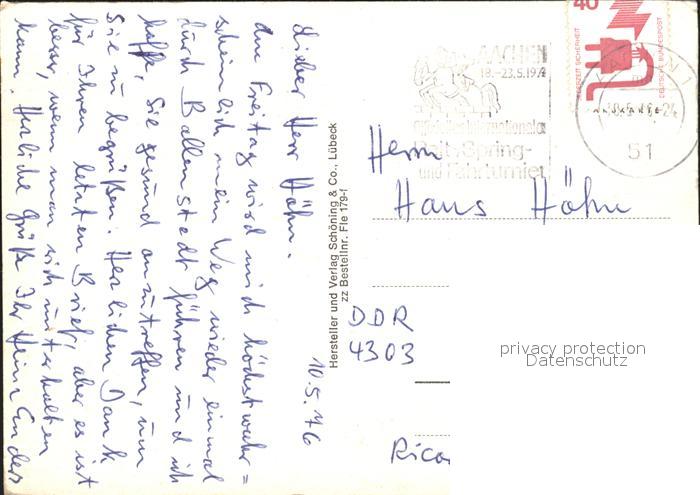 10.5.76
Lieber Herr Höhn.
Am Freitag wird mich höchstwahr=
scheinlich mein Weg wieder einmal
durch Ballenstedt führen und ich
hoffe, Sie gesund anzutreffen, um
Sie zu begrüßen. Herzlichen Dank
für Ihren letzten Brief, aber es ist
besser, wenn man sich unterhalten
kann. Herzliche Grüße Ihr Heinz
Hersteller und Verlag Schöning & Co., Lübeck
zz Bestellnr. Fle 179-f
AACHEN
18.-23.5.197
Reit-, Spring-
und Fahrturnier
40
JEDERZEIT SICHERHEIT
DEUTSCHE BUNDESPOST
51
Herrn
Hans Höhn
DDR
4303
privacy protection
Datenschutz